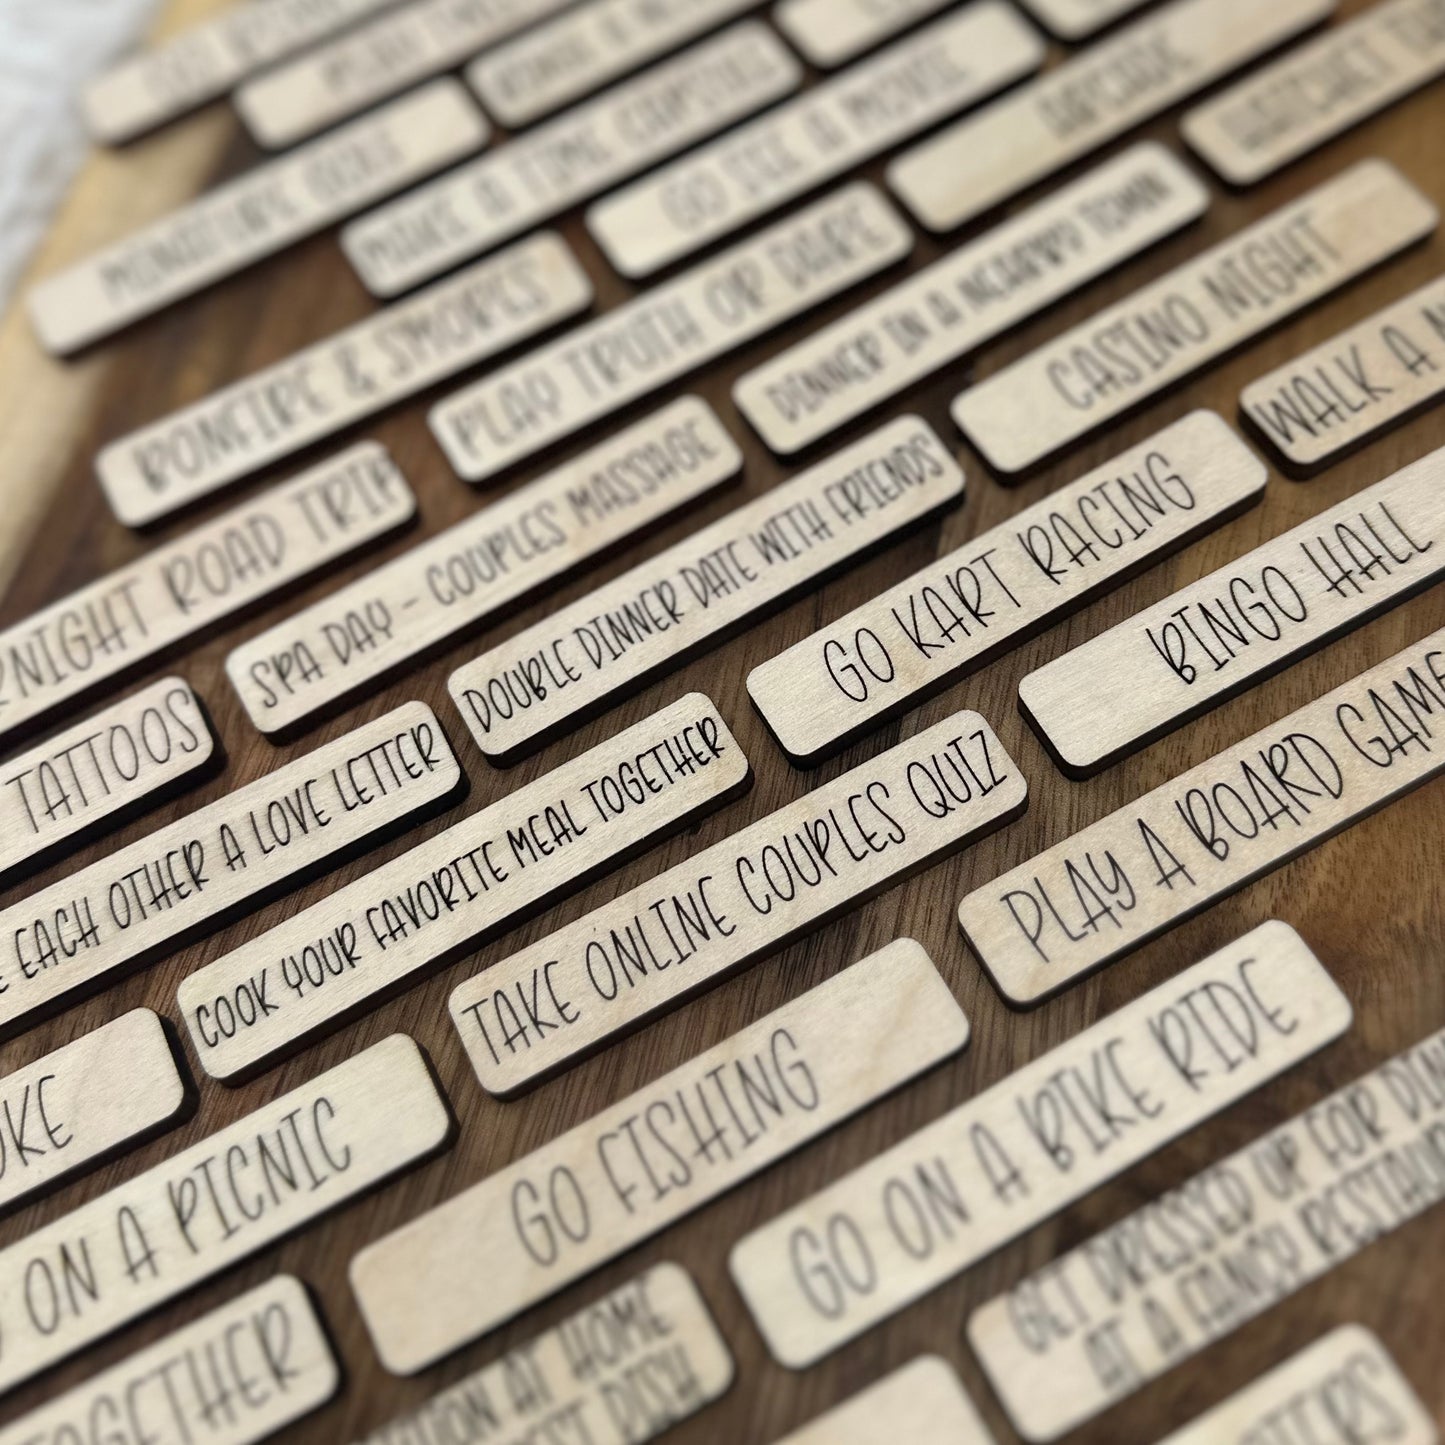 MINIATURE GOLF
MAKE A TIME CAPSULE
GO SEE A MOVIE
ARCADE
HATCHET
BONFIRE & SMORES
PLAY TRUTH OR DARE
DINNER IN A NEARBY TOWN
CASINO NIGHT
WALK A
RNIGHT ROAD TRIP
SPA DAY - COUPLES MASSAGE
DOUBLE DINNER DATE WITH FRIENDS
GO KART RACING
BINGO HALL
TATTOOS
EACH OTHER A LOVE LETTER
COOK YOUR FAVORITE MEAL TOGETHER
TAKE ONLINE COUPLES QUIZ
PLAY A BOARD GAME
OKE
ON A PICNIC
GO FISHING
GO ON A BIKE RIDE
GET DRESSED UP FOR DIN
AT A FANCY RESTAU
TOGETHER
AT HOME
DISH